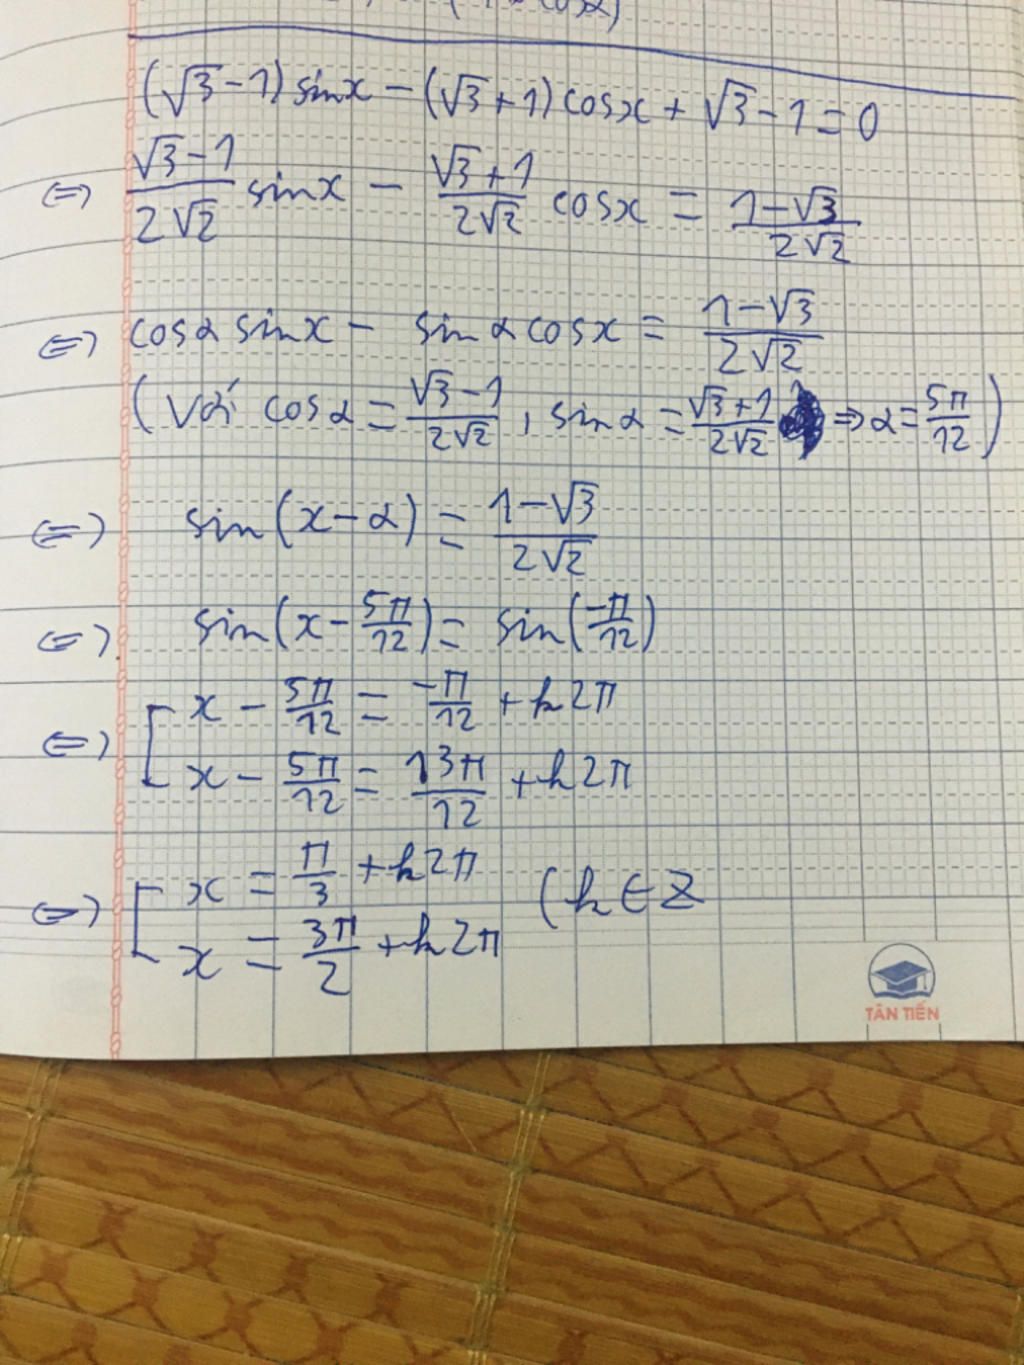 cosα)
(√3-1) sinx - (√3+1) cosx + √3-1 = 0
⇔ (√3-1)/(2√2) sinx - (√3+1)/(2√2) cosx = (1-√3)/(2√2)
⇔ cosα sinx - sinα cosx = (1-√3)/(2√2)
(Với cosα = (√3-1)/(2√2), sinα = (√3+1)/(2√2) ⇒ α = 5π/12)
⇔ sin(x-α) = (1-√3)/(2√2)
⇔ sin(x - 5π/12) = sin(-π/12)
⇔ [ x - 5π/12 = -π/12 + k2π
x - 5π/12 = 13π/12 + k2π
⇔ [ x = π/3 + k2π (k ∈ Z
x = 3π/2 + k2π
TÂN TIẾN